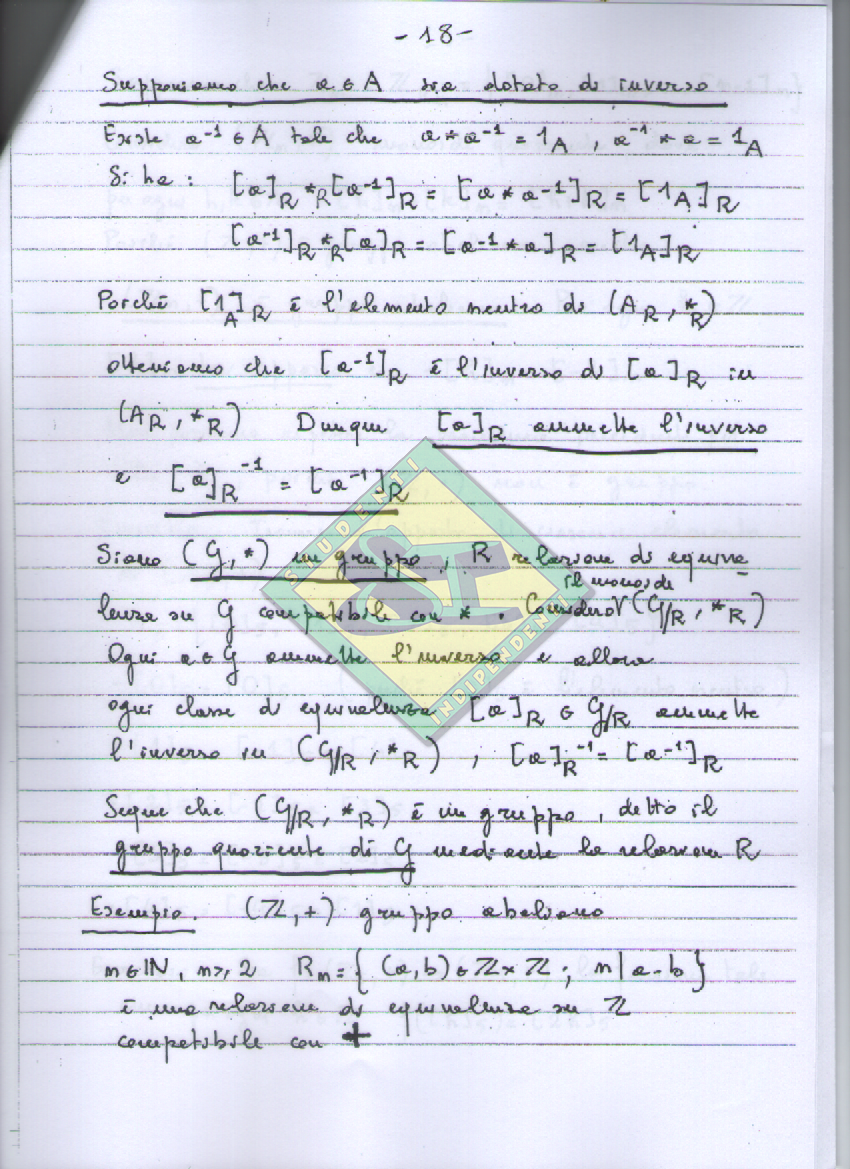 - 18 -
Supponiamo che a ∈ A sia dotato di inverso
Esiste a⁻¹ ∈ A tale che a * a⁻¹ = 1_A , a⁻¹ * a = 1_A
Si ha : [a]_R *_R [a⁻¹]_R = [a * a⁻¹]_R = [1_A]_R
[a⁻¹]_R *_R [a]_R = [a⁻¹ * a]_R = [1_A]_R
Poiché [1_A]_R è l'elemento neutro di (A_R , *_R)
otteniamo che [a⁻¹]_R è l'inverso di [a]_R in
(A_R , *_R) Dunque [a]_R ammette l'inverso
e [a]_R⁻¹ = [a⁻¹]_R
Siano (G, *) un gruppo , R relazione di equiva
il monoide
lenza su G compatibile con * . Considero (G/R , *_R)
Ogni a ∈ G ammette l'inverso e allora
ogni classe di equivalenza [a]_R ∈ G/R ammette
l'inverso in (G/R , *_R) , [a]_R⁻¹ = [a⁻¹]_R
Segue che (G/R , *_R) è un gruppo , detto il
gruppo quoziente di G mediante la relazione R
Esempio. (ℤ, +) gruppo abeliano
n ∈ ℕ, n ≥ 2 R_n = { (a, b) ∈ ℤ × ℤ ; n | a - b }
è una relazione di equivalenza su ℤ
compatibile con +
STUDENTI
SI
INDIPENDENTI